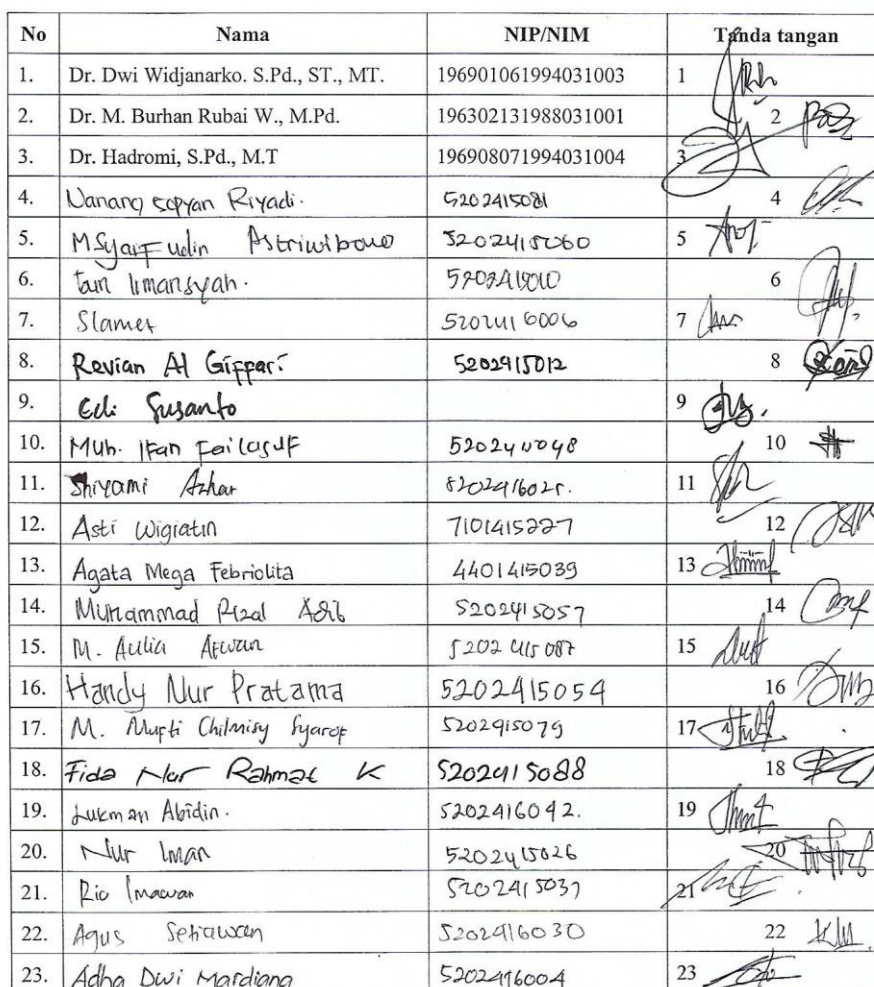 No Nama NIP/NIM Tanda tangan
1. Dr. Dwi Widjanarko. S.Pd., ST., MT. 196901061994031003 1
2. Dr. M. Burhan Rubai W., M.Pd. 196302131988031001 2
3. Dr. Hadromi, S.Pd., M.T 196908071994031004 3
4. Nanang sopyan Riyadi. 5202415081 4
5. M Syaifudin Astriwibowo 5202415060 5
6. limansyah. 6
7. Slamet 5202416006 7
8. Revian Al Giffari 5202415012 8
9. Edi Susanto 9
10. Muh. Ifan Failasuf 10
11. Shiyami Azhar 5202416025. 11
12. Asti Wigiatin 7101415227 12
13. Agata Mega Febriolita 4401415039 13
14. Muhammad Rizal Adib 5202415057 14
15. M. Aulia 5202415087 15
16. Handy Nur Pratama 5202415054 16
17. M. Mufti Chilmisy Syarof 5202415079 17
18. Fida Nur Rahmat K 5202415088 18
19. Lukman Abidin. 5202416042. 19
20. Nur Iman 5202415026 20
21. Rio Imawan 5202415037 21
22. Agus Setiawan 5202416030 22
23. Adha Dwi Mardiana 5202416004 23